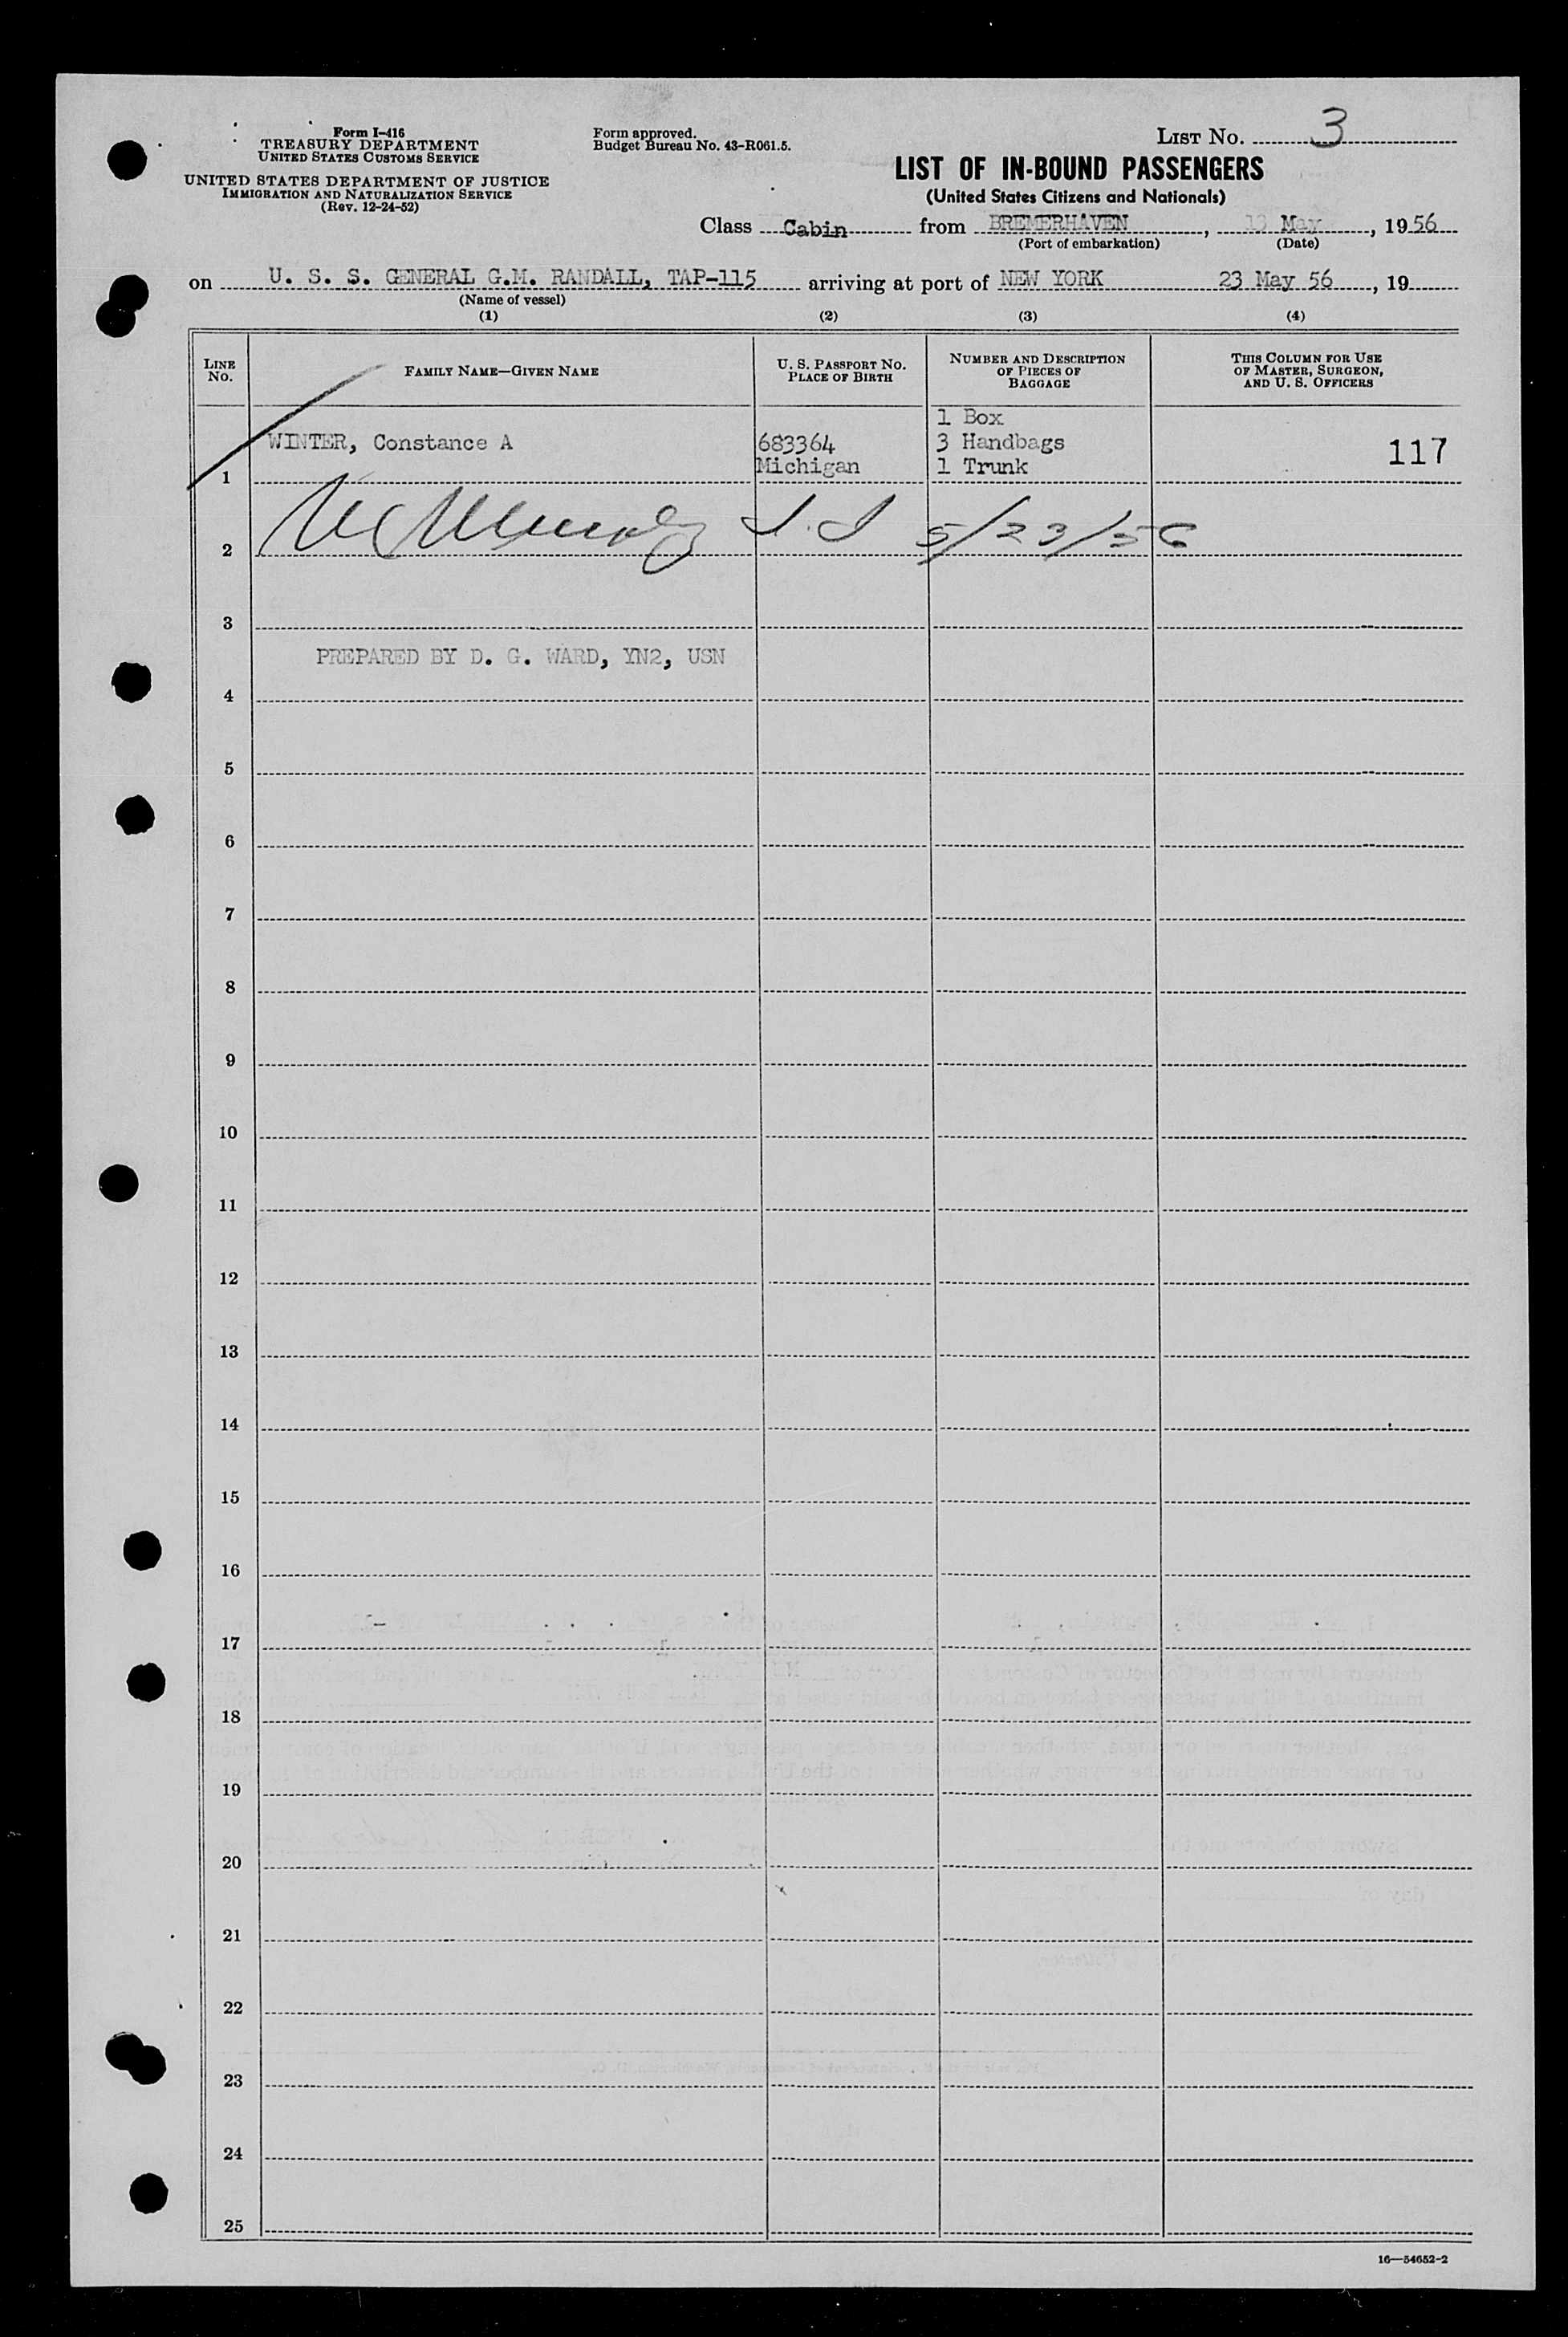 Form I-416
TREASURY DEPARTMENT
UNITED STATES CUSTOMS SERVICE
UNITED STATES DEPARTMENT OF JUSTICE
IMMIGRATION AND NATURALIZATION SERVICE
(Rev. 12-24-52)
Form approved.
Budget Bureau No. 43-R061.5.
LIST NO. 3
LIST OF IN-BOUND PASSENGERS
(United States Citizens and Nationals)
Class Cabin from BREMERHAVEN, 13 May, 1956
(Port of embarkation) (Date)
on U. S. S. GENERAL G.M. RANDALL, TAP-115 arriving at port of NEW YORK 23 May 56, 19
(Name of vessel)
(1) (2) (3) (4)
LINE NO.
FAMILY NAME—GIVEN NAME
U. S. PASSPORT NO.
PLACE OF BIRTH
NUMBER AND DESCRIPTION
OF PIECES OF
BAGGAGE
THIS COLUMN FOR USE
OF MASTER, SURGEON,
AND U. S. OFFICERS
1 Box
WINTER, Constance A 683364 3 Handbags 117
1 Michigan 1 Trunk
2 5/23/56
3
PREPARED BY D. G. WARD, YN2, USN
4
5
6
7
8
9
10
11
12
13
14
15
16
17
18
19
20
21
22
23
24
25
16—54652-2